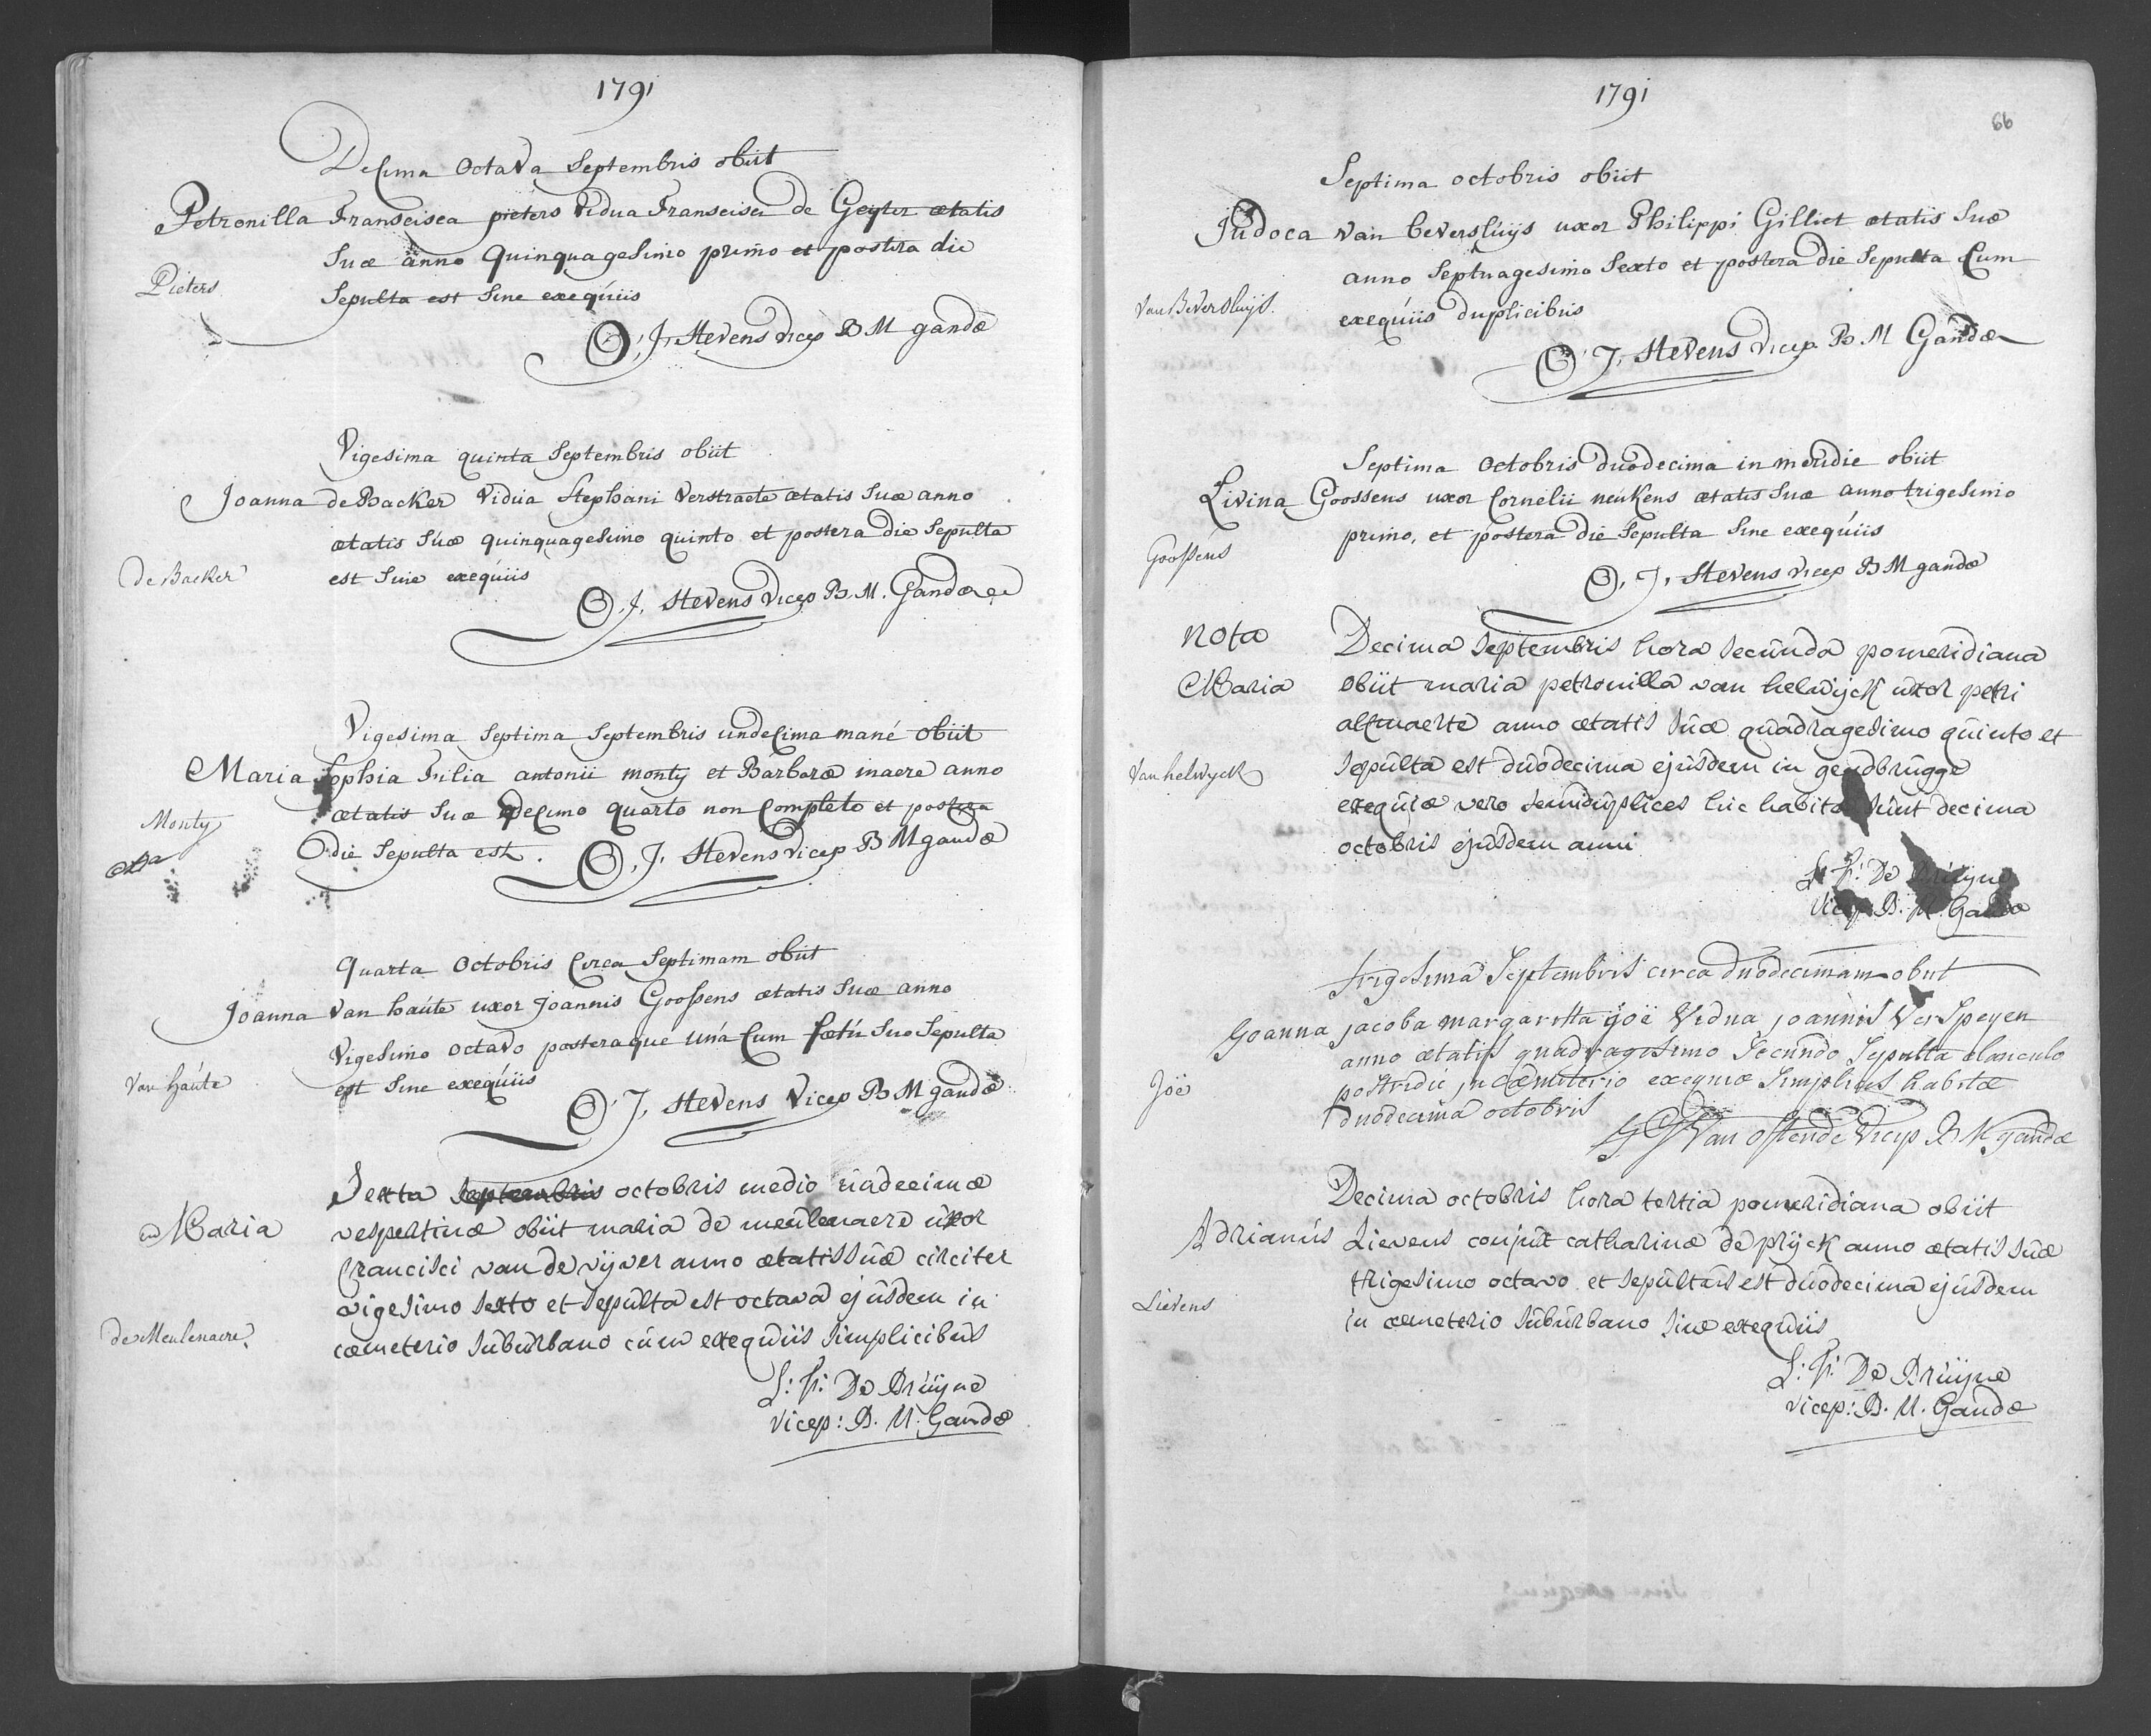 1791
Decima octava Septembris obiit
Petronilla Franscisca pieters vidua Franscisci de Geyter ætatis
suæ anno quinquagesimo primo et postera die
Pieters
Sepulta est sine exequiis
J. Stevens vicep B M gandæ
Vigesima quinta Septembris obiit
Joanna de Backer vidua Stephani Verstraete ætatis suæ anno
ætatis suæ quinquagesimo quinto et postera die sepulta
de Backer
est sine exequiis
J. Stevens vicep B. M. Gandæ
Vigesima Septima Septembris undecima mané obiit
Maria Sophia Filia antonii monty et Barbaræ inaere anno
Monty
ætatis suæ decimo quarto non completo et postera
die Sepulta est. J. Stevens vicep B M gandæ
Quarta Octobris circa septimam obiit
Joanna van haute uxor Joannis Goossens ætatis suæ anno
vigesimo octavo posteraque uná cum fœtú suo sepulta
van haúte
est sine exequiis
J. Stevens vicep B M gandæ
Sexta septembris octobris medio undecimæ
Maria
vespertinæ obiit maria de meulenaere uxor
francisci van de vijver anno ætatis suæ circiter
vigesimo sexto et sepulta est octava ejusdem in
de Meulenaere
cæmeterio suburbano cum exequiis simplicibus
L: F: De Brúÿne
vicep: B. M. Gandæ
1791
66
Septima octobris obiit
Judoca van beversluijs uxor Philippi Gilliet ætatis suæ
anno septuagesimo sexto et postera die sepulta cum
van Beversluijs.
exequiis duplicibus
J. Stevens vicep. B. M Gandæ
Septima Octobris duodecima in meridie obiit
Livina Goossens uxor Cornelii neukens ætatis suæ anno trigesimo
primo, et postera die sepulta sine exequiis
Goossens
J. Stevens vicep B M gandæ
nota
Decima septembris hora secunda pomeridiana
Maria
obiit maria petronilla van helwijck uxor petri
allmaerte anno ætatis suæ quadragesimo quinto et
van helwyck
sepulta est duodecima ejusdem in gendbrugge
exequiæ vero semiduplices hic habitæ sunt decima
octobris ejusdem anni
L: F: De Brúÿne
vicep: B. M. Gandæ
trigesima Septembris circa duodecimam obiit
Joanna jacoba margaretta joë vidua joannis Verspeyen
anno ætatis quadragesimo Secundo Sepulta clanculo
Joë
postridie in cœmiterio exequiæ simplices habitæ
duodecima octobris
Van Ostende vicep B M gandæ
Decima octobris hora tertia pomeridiana obiit
Adrianús Lievens conjux catharinæ de prijck anno ætatis suæ
trigesimo octavo et sepultus est duodecima ejusdem
Lievens
in cæmeterio suburbano sine exequiis
L: F: De Brúÿne
vicep: B. M. Gandæ